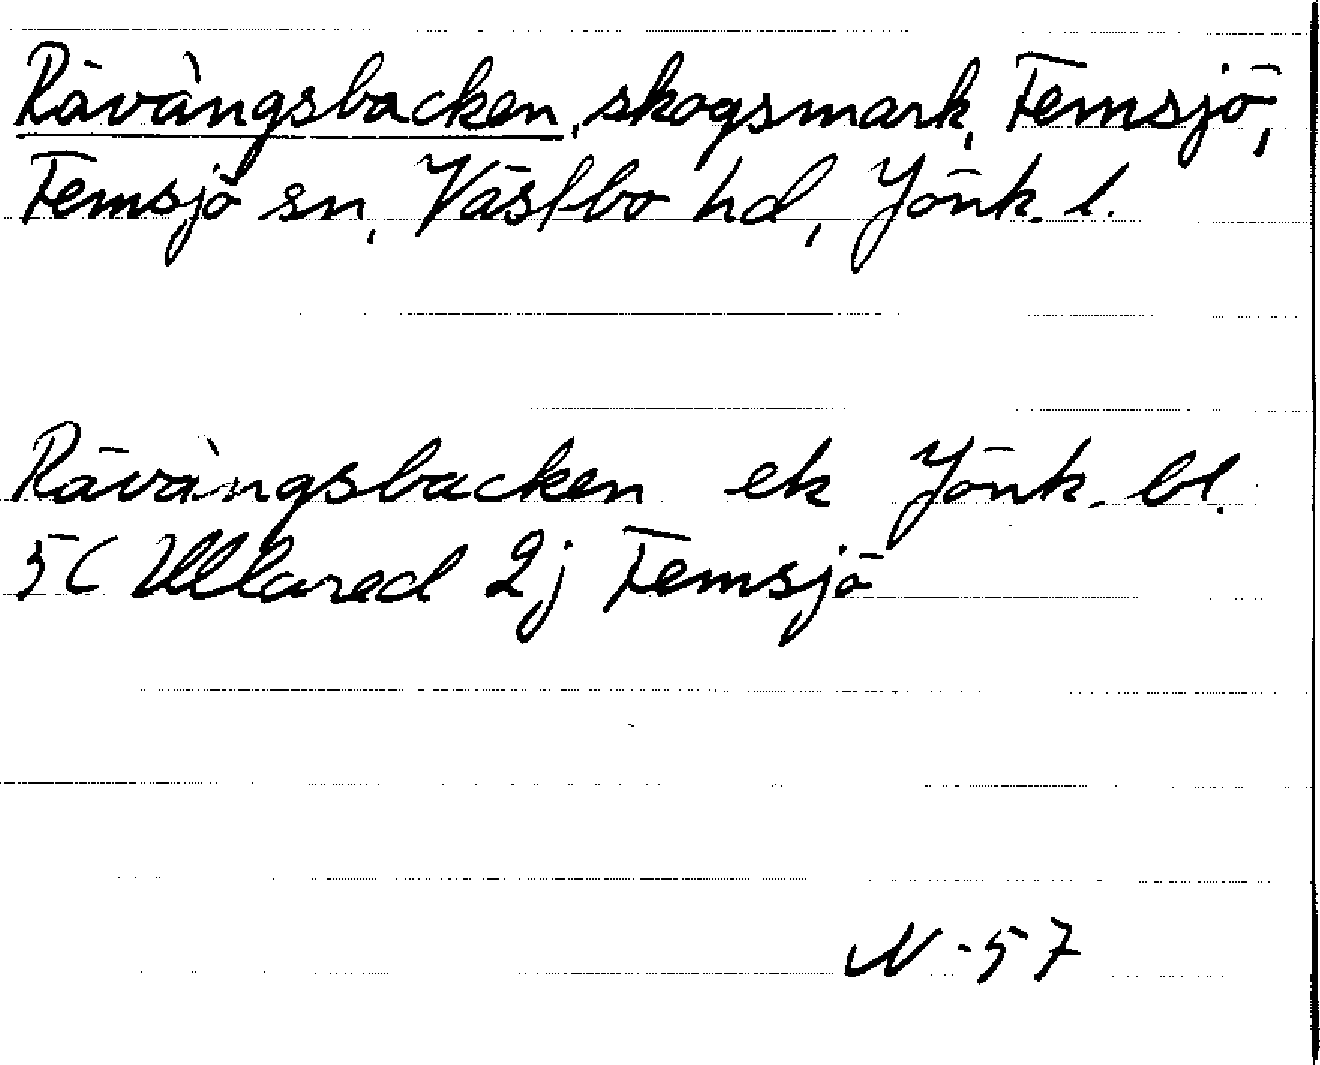 Rävängsbacken, skogsmark, Femsjö,
Femsjö sn, Västbo hd, Jönk. l.
Rävängsbacken ek Jönk. bl.
5C Ullared 2j Femsjö
N-57